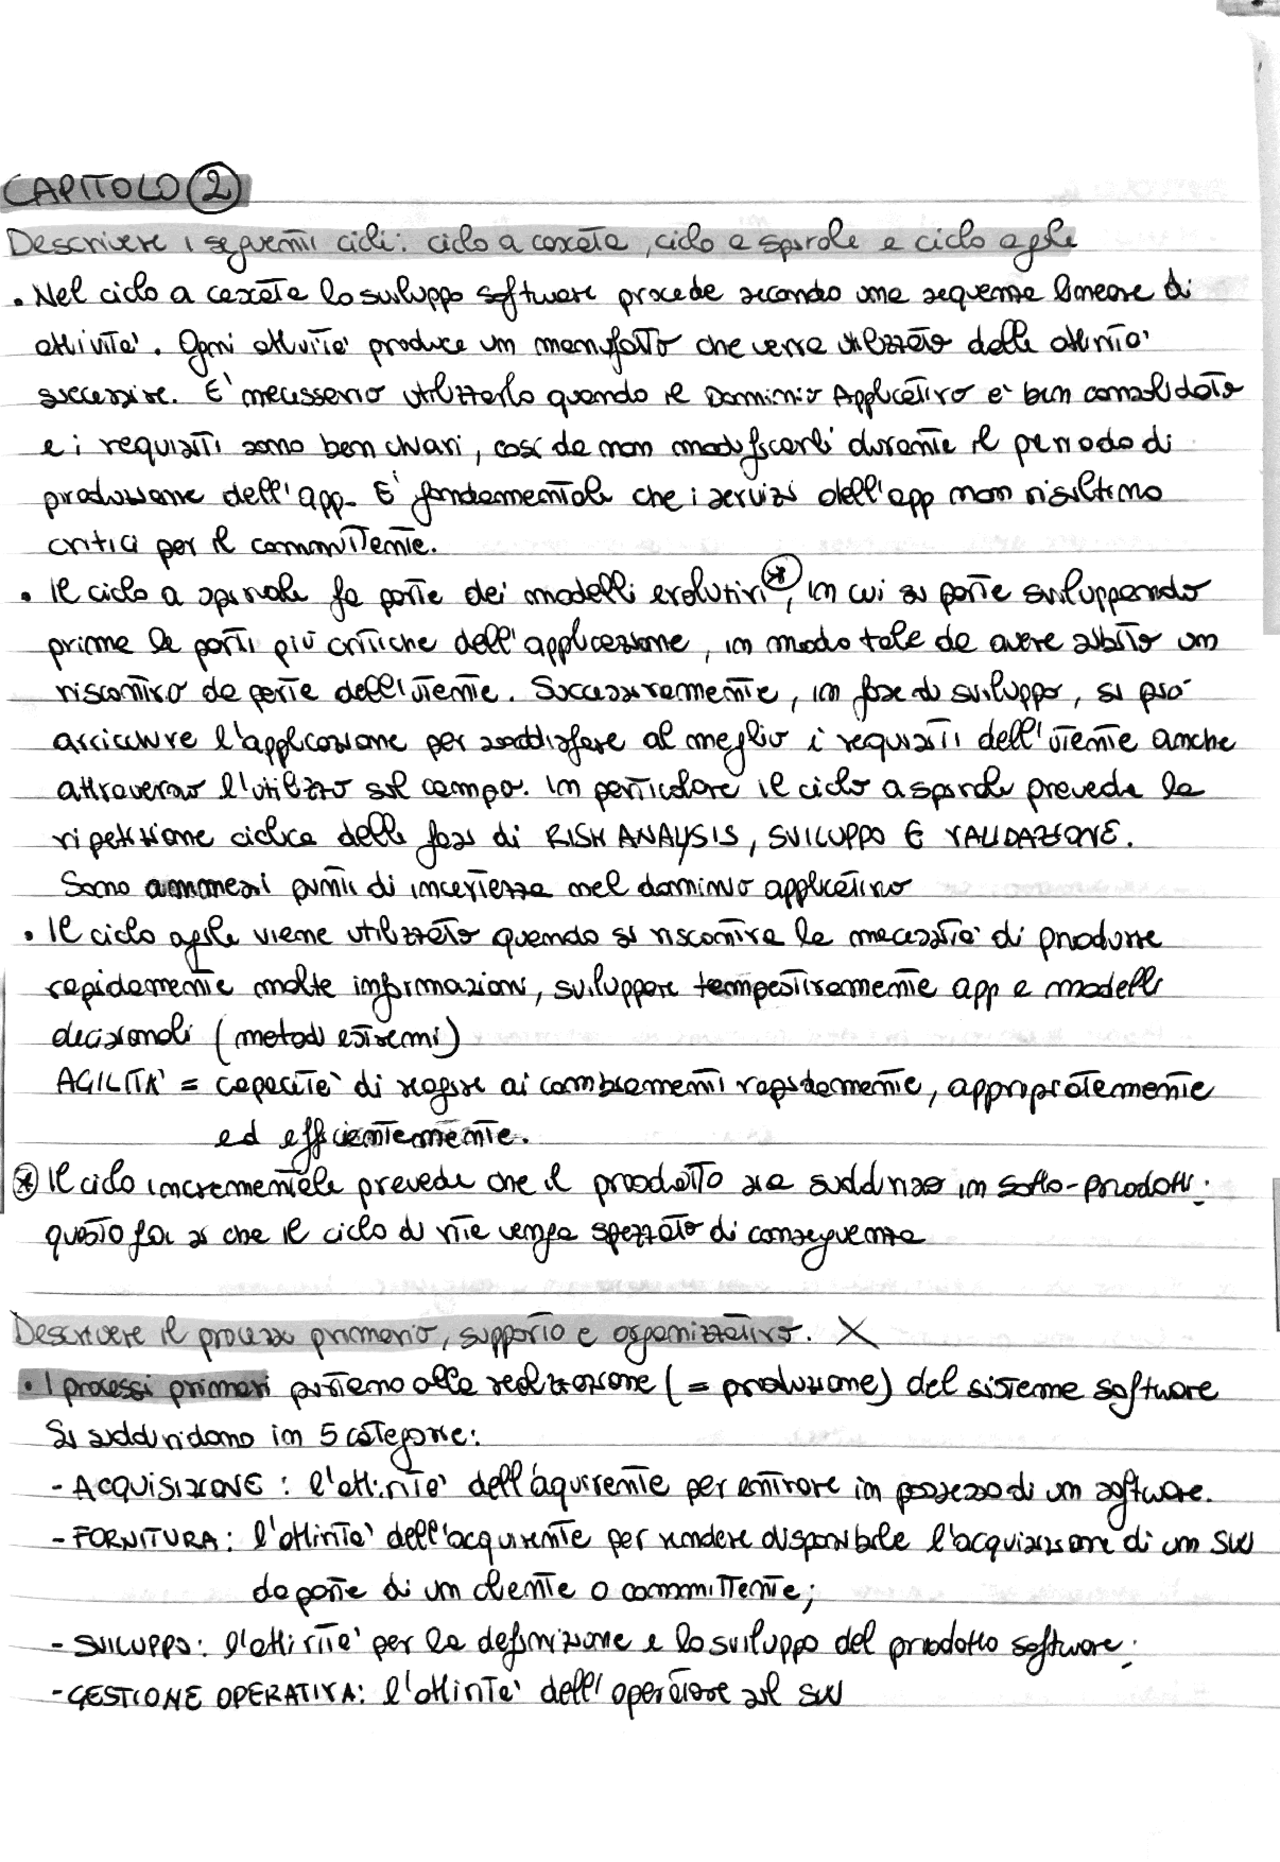 CAPITOLO 2
Descrivere i seguenti cicli: ciclo a cascata, ciclo a spirale e ciclo agile
• Nel ciclo a cascata lo sviluppo software procede secondo una sequenza lineare di
attività. Ogni attività produce un manufatto che verrà utilizzato dalle attività
successive. E' necessario utilizzarlo quando il Dominio Applicativo è ben consolidato
e i requisiti sono ben chiari, così da non modificarli durante il periodo di
produzione dell'app. E' fondamentale che i servizi dell'app non risultino
critici per il committente.
• Il ciclo a spirale fa parte dei modelli evolutivi*, in cui si parte sviluppando
prima le parti più critiche dell'applicazione, in modo tale da avere subito un
riscontro da parte dell'utente. Successivamente, in fase di sviluppo, si può
arricchire l'applicazione per soddisfare al meglio i requisiti dell'utente anche
attraverso l'utilizzo sul campo. In particolare il ciclo a spirale prevede la
ripetizione ciclica delle fasi di RISK ANALYSIS, SVILUPPO E VALIDAZIONE.
Sono ammessi punti di incertezza nel dominio applicativo
• Il ciclo agile viene utilizzato quando si riscontra la necessità di produrre
rapidamente molte informazioni, sviluppare tempestivamente app e modelli
decisionali (metodi estremi)
AGILITA' = capacità di reagire ai cambiamenti rapidamente, appropriatamente
ed efficientemente.
* Il ciclo incrementale prevede che il prodotto sia suddiviso in sotto-prodotti:
questo fa sì che il ciclo di vita venga spezzato di conseguenza
Descrivere il processo primario, supporto e organizzativo. X
• I processi primari puntano alla realizzazione (= produzione) del sistema software
Si suddividono in 5 categorie:
- ACQUISIZIONE: l'attività dell'aquirente per entrare in possesso di un software.
- FORNITURA: l'attività dell'acquirente per rendere disponibile l'acquisizione di un SW
da parte di un cliente o committente;
- SVILUPPO: l'attività per la definizione e lo sviluppo del prodotto software;
- GESTIONE OPERATIVA: l'attività dell'operatore sul SW